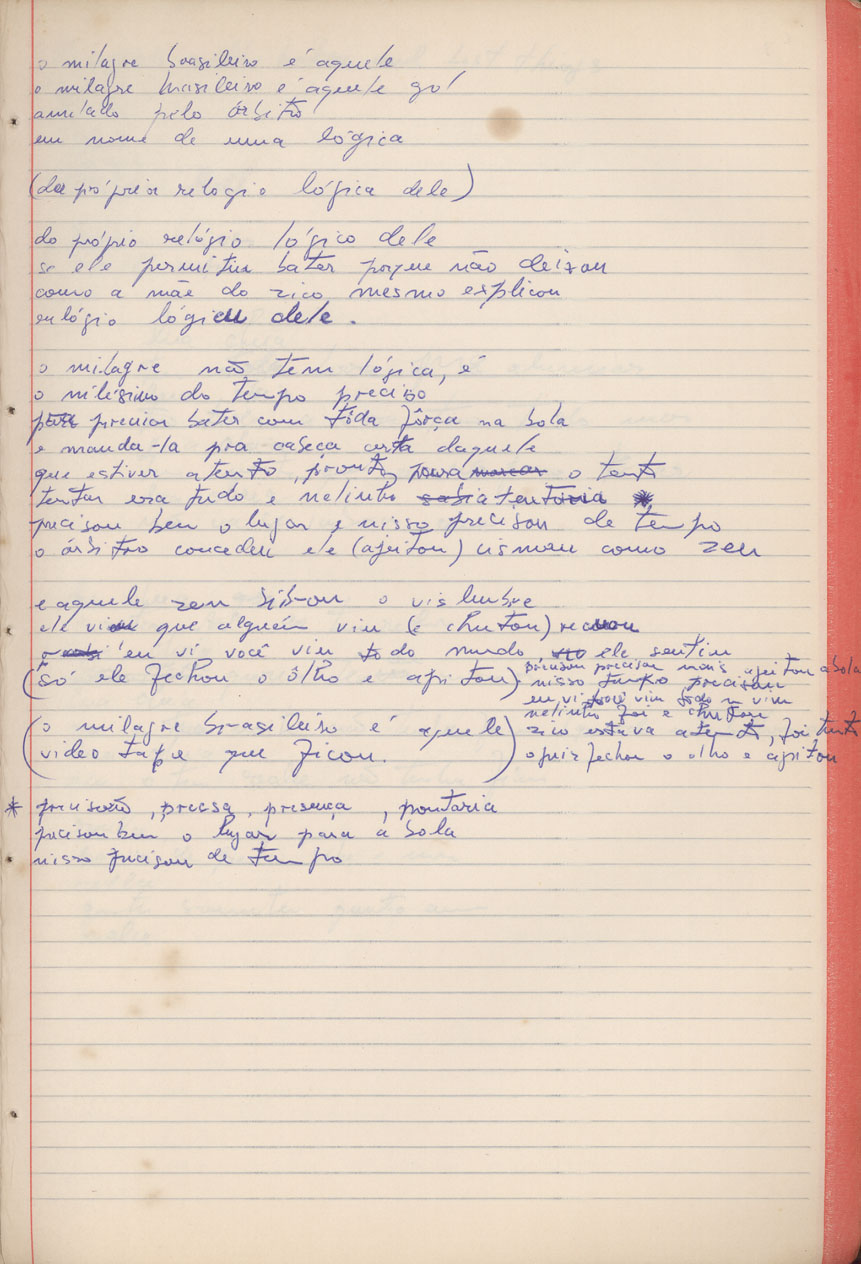 o milagre brasileiro é aquele
o milagre brasileiro é aquele gol
anulado pelo árbitro
em nome de uma lógica
(da própria relogio lógica dele)
do próprio relógio lógico dele
se ele permitiu bater porque não deixou
como a mãe do zico mesmo explicou
relógio lógico dele.
o milagre não tem lógica, é
o milésimo do tempo preciso
precisa bater com tôda fôrça na bola
e manda-la pra cabeça certa daquele
que estiver atento, pronto, para marcar o tento
tentar era tudo e nelinho sabia tentaria *
precisou bem o lugar e nisso precisou de tempo
o árbitro concedeu ele (ajeitou) cismou como zen
e aquele zen o vislumbre
ele viu que alguém viu (e chutou) recuou
o eu vi você viu todo mundo viu ele sentiu
(só ele fechou o ôlho e apitou)
precisou precisar mais ajeitou a bola
nisso tempo precisou
eu vi você viu todo m viu
nelinho foi e chutou
zico estava atento, foi tento
o juiz fechou o olho e apitou
(o milagre brasileiro é aquele
video tape que ficou.)
* precisão, pressa, presença, pontaria
precisou bem o lugar para a bola
nisso precisou de tempo